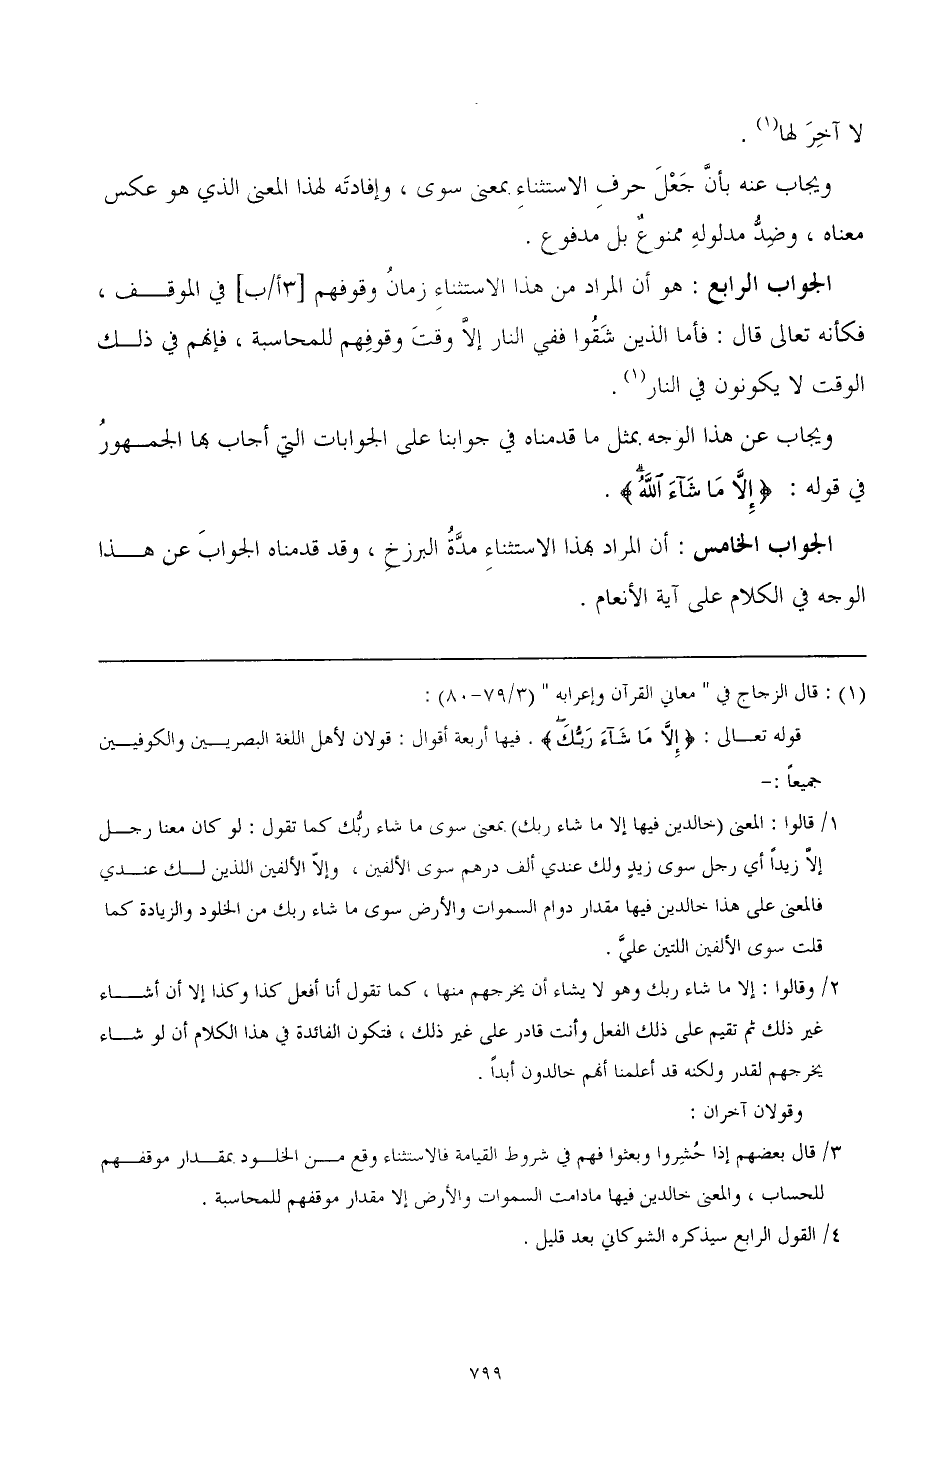 لا آخِرَ لها(١) .
ويجاب عنه بأنَّ جَعْلَ حرفِ الاستثناءِ بمعنى سوى ، وإفادتَه لهذا المعنى الذي هو عكس
معناه ، وضِدُّ مدلولهِ ممنوعٌ بل مدفوع .
الجواب الرابع : هو أن المراد من هذا الاستثناءِ زمانُ وقوفهم [٣أ/ب] في الموقف ،
فكأنه تعالى قال : فأما الذين شَقُوا ففي النار إلاَّ وقتَ وقوفِهم للمحاسبة ، فإنهم في ذلك
الوقت لا يكونون في النار(١) .
ويجاب عن هذا الوجه بمثل ما قدمناه في جوابنا على الجوابات التي أجاب بها الجمهورُ
في قوله : ﴿إِلَّا مَا شَآءَ ٱللَّهُۗ﴾ .
الجواب الخامس : أن المراد بهذا الاستثناءِ مدَّةُ البرزخِ ، وقد قدمناه الجوابَ عن هذا
الوجه في الكلام على آية الأنعام .
(١) : قال الزجاج في " معاني القرآن وإعرابه " (٣/٧٩-٨٠) :
قوله تعالى : ﴿إِلَّا مَا شَآءَ رَبُّكَۖ﴾ . فيها أربعة أقوال : قولان لأهل اللغة البصريين والكوفيين
جميعاً :-
١/ قالوا : المعنى (خالدين فيها إلا ما شاء ربك) بمعنى سوى ما شاء ربُّك كما تقول : لو كان معنا رجل
إلاَّ زيداً أي رجل سوى زيدٍ ولك عندي ألف درهم سوى الألفين ، وإلاّ الألفين اللذين لك عندي
فالمعنى على هذا خالدين فيها مقدار دوام السموات والأرض سوى ما شاء ربك من الخلود والزيادة كما
قلت سوى الألفين اللتين عليَّ .
٢/ وقالوا : إلا ما شاء ربك وهو لا يشاء أن يخرجهم منها ، كما تقول أنا أفعل كذا وكذا إلا أن أشاء
غير ذلك ثم تقيم على ذلك الفعل وأنت قادر على غير ذلك ، فتكون الفائدة في هذا الكلام أن لو شاء
يخرجهم لقدر ولكنه قد أعلمنا أنهم خالدون أبداً .
وقولان آخران :
٣/ قال بعضهم إذا حُشِروا وبعثوا فهم في شروط القيامة فالاستثناء وقع من الخلود بمقدار موقفهم
للحساب ، والمعنى خالدين فيها مادامت السموات والأرض إلا مقدار موقفهم للمحاسبة .
٤/ القول الرابع سيذكره الشوكاني بعد قليل .
٧٩٩